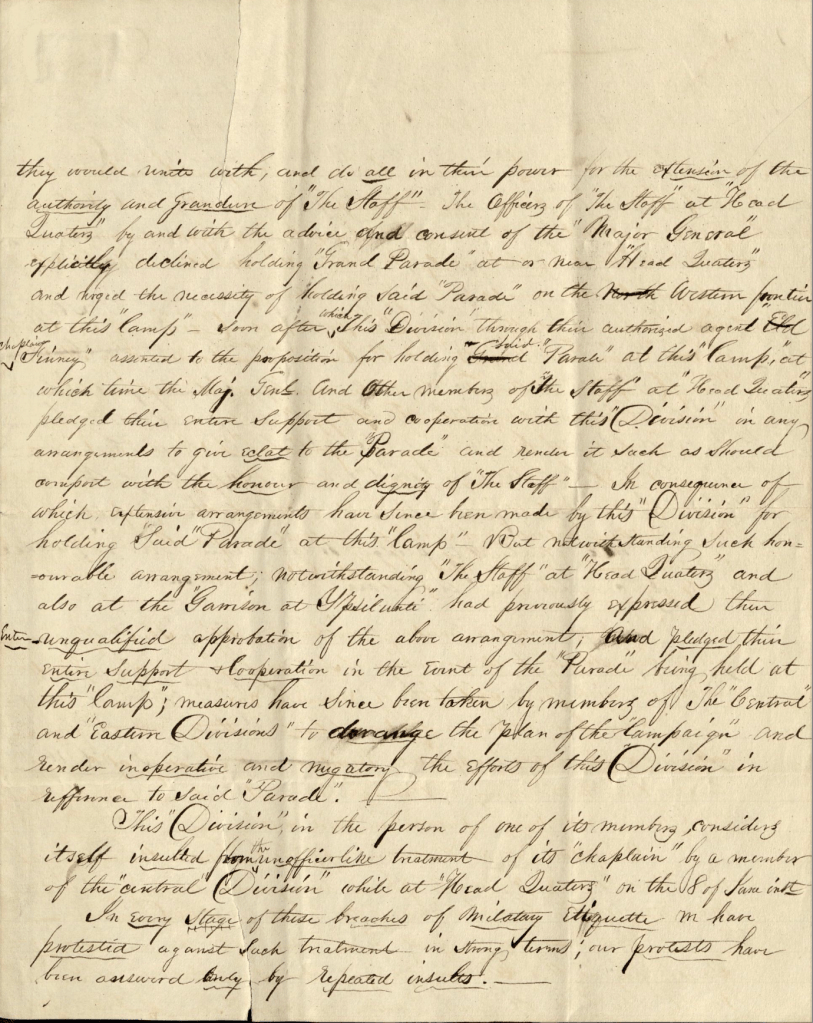 they would unite with, and do all in their power for the extension of the
authority and Grandure of "The Staff" - The Officers of "The Staff" at "Head
Quaters" by and with the advice and consent of the "Major General"
explicitly declined holding "Grand Parade" at or near "Head Quaters"
and urged the necessity of holding said "Parade" on the North Western frontier
at this "Camp" - Soon after which, This "Division" through their authorized agent Eld
Chaplain Finney" assented to the proposition for holding Grand "said" "Parade" at this "Camp," at
which time the Maj. Genl. and Other members of "The Staff" at "Head Quaters"
pledged their entire Support and cooperation with this "Division" in any
arrangements to give eclat to the "Parade" and render it such as should
comport with the honour and dignity of "The Staff" - In consequence of
which, extensive arrangements have since been made by this "Division" for
holding "Said "Parade" at this "Camp" - But notwithstanding such hon=
=ourable arrangement; notwithstanding "The Staff" at "Head Quaters" and
also at the "Garrison at YPsilanti" had previously expressed their
Enter unqualified approbation of the above arrangement; and pledged their
Entire Support & Cooperation in the Event of the "Parade" being held at
this "Camp"; measures have since been taken by members of The "Central"
and "Eastern Divisions" to derange the Plan of the "Campaign" and
render inoperative and nugatory the efforts of this "Division" in
refference to Said "Parade".
This "Division", in the person of one of its members, considers
itself insulted from the unofficerlike treatment of its "chaplain" by a member
of the "central" "Division" while at "Head Quaters" on the 8 of June inst
In every Stage of these breaches of Military Etiquette we have
protested against such treatment in strong terms; our protests have
been answerd only by repeated insults.